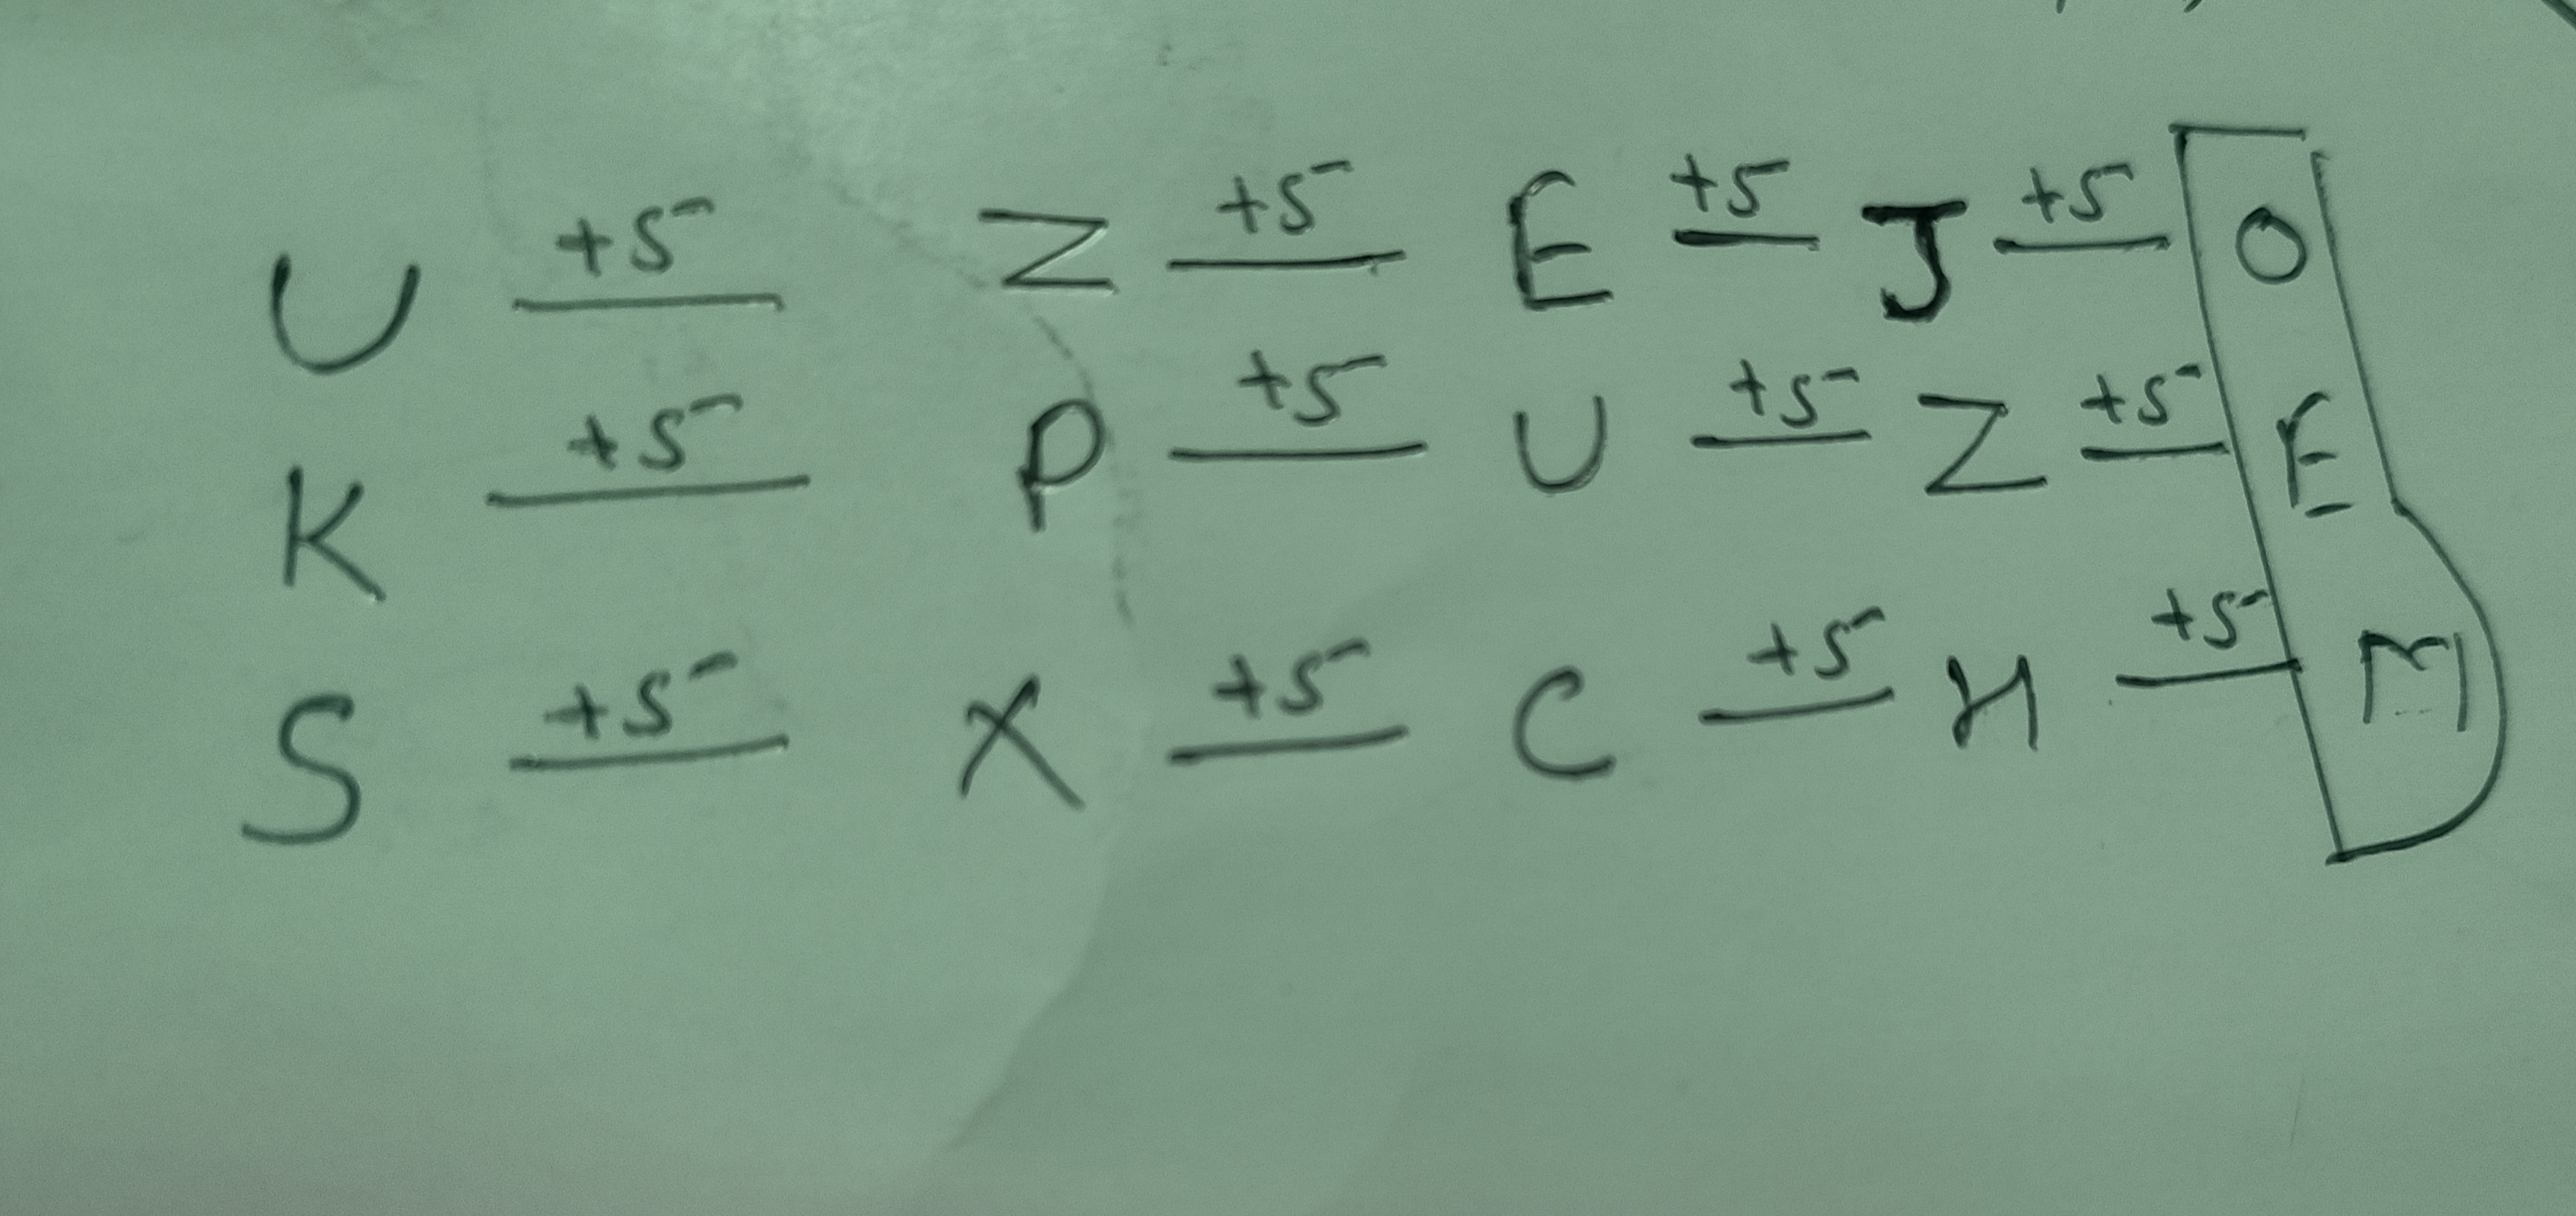 U +5 Z +5 E +5 J +5 O
K +5 P +5 U +5 Z +5 E
S +5 X +5 C +5 H +5 M